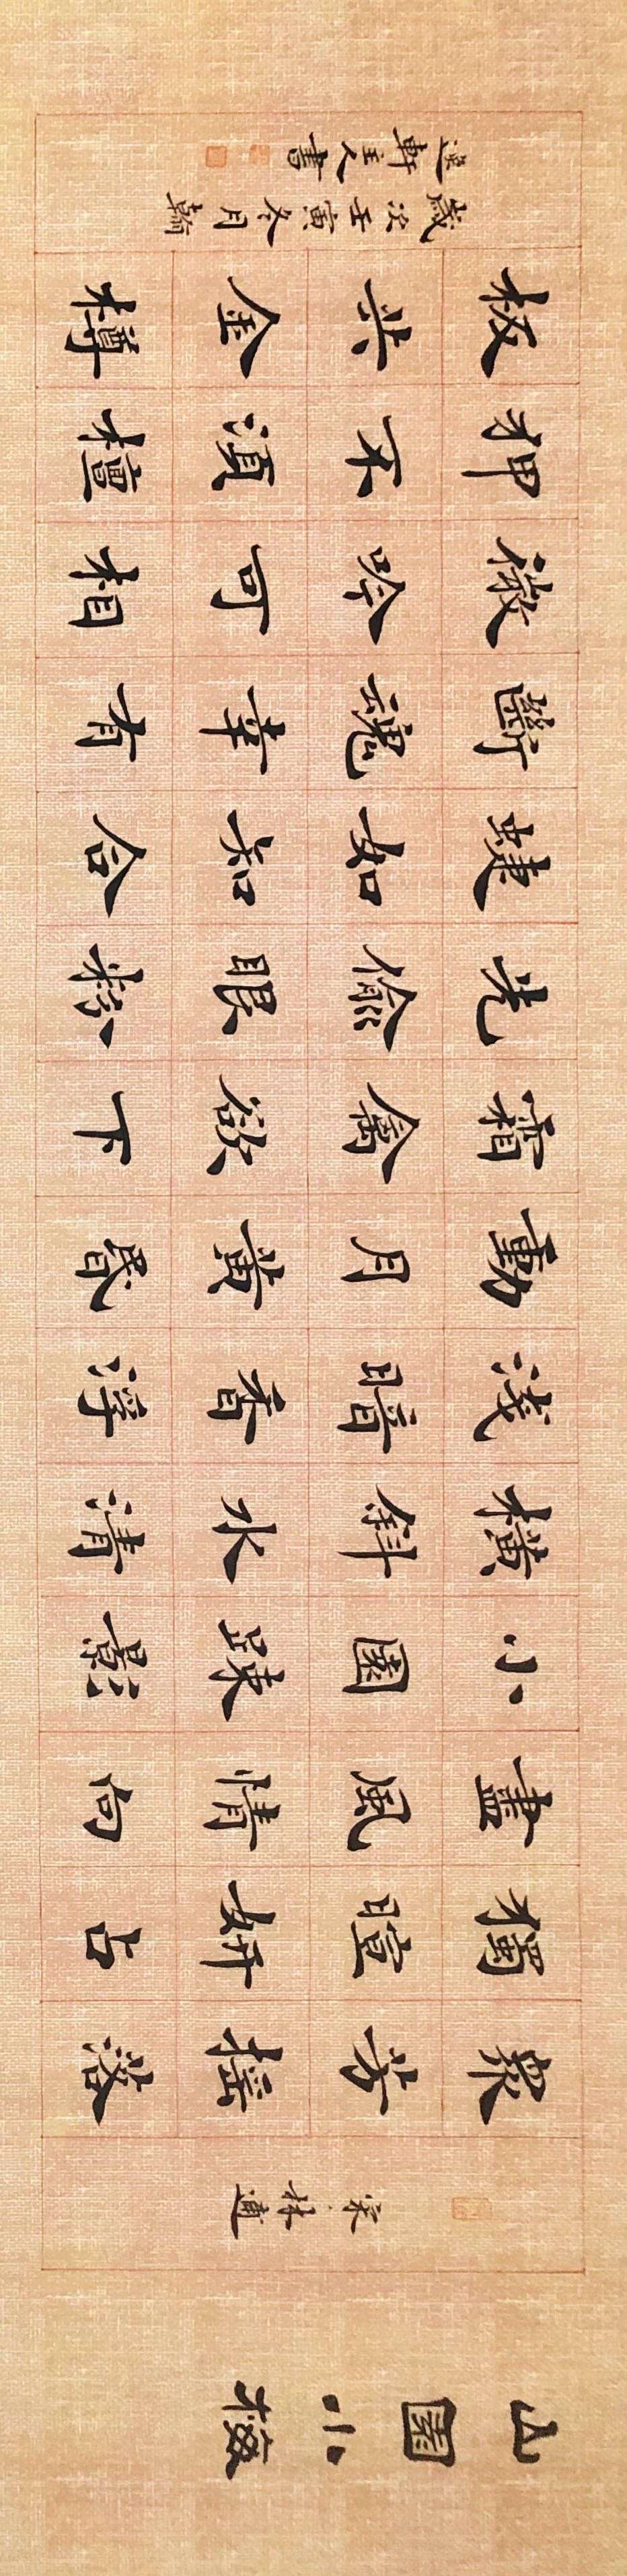 山園小梅
宋林逋
衆芳搖落
獨暄妍占
盡風情向
小園疎影
橫斜水清
淺暗香浮
動月黃昏
霜禽欲下
先偷眼粉
蝶如知合
斷魂幸有
微吟可相
狎不須檀
板共金樽
歲次壬寅冬月翰
逸軒主人書